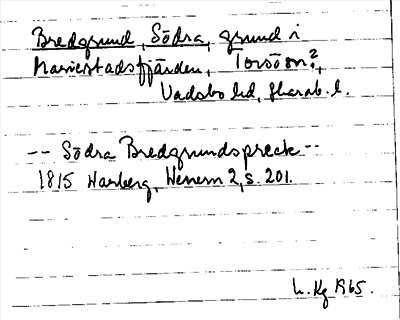 Bredgrund, Södra, grund i
Mariestadsfjärden, Torsö sn?,
Vadsbo hd, Skarab. l.
-- Södra Bredgrundspreck --
1815 Warberg, Wenern 2, s. 201.
L. Hg 1965.